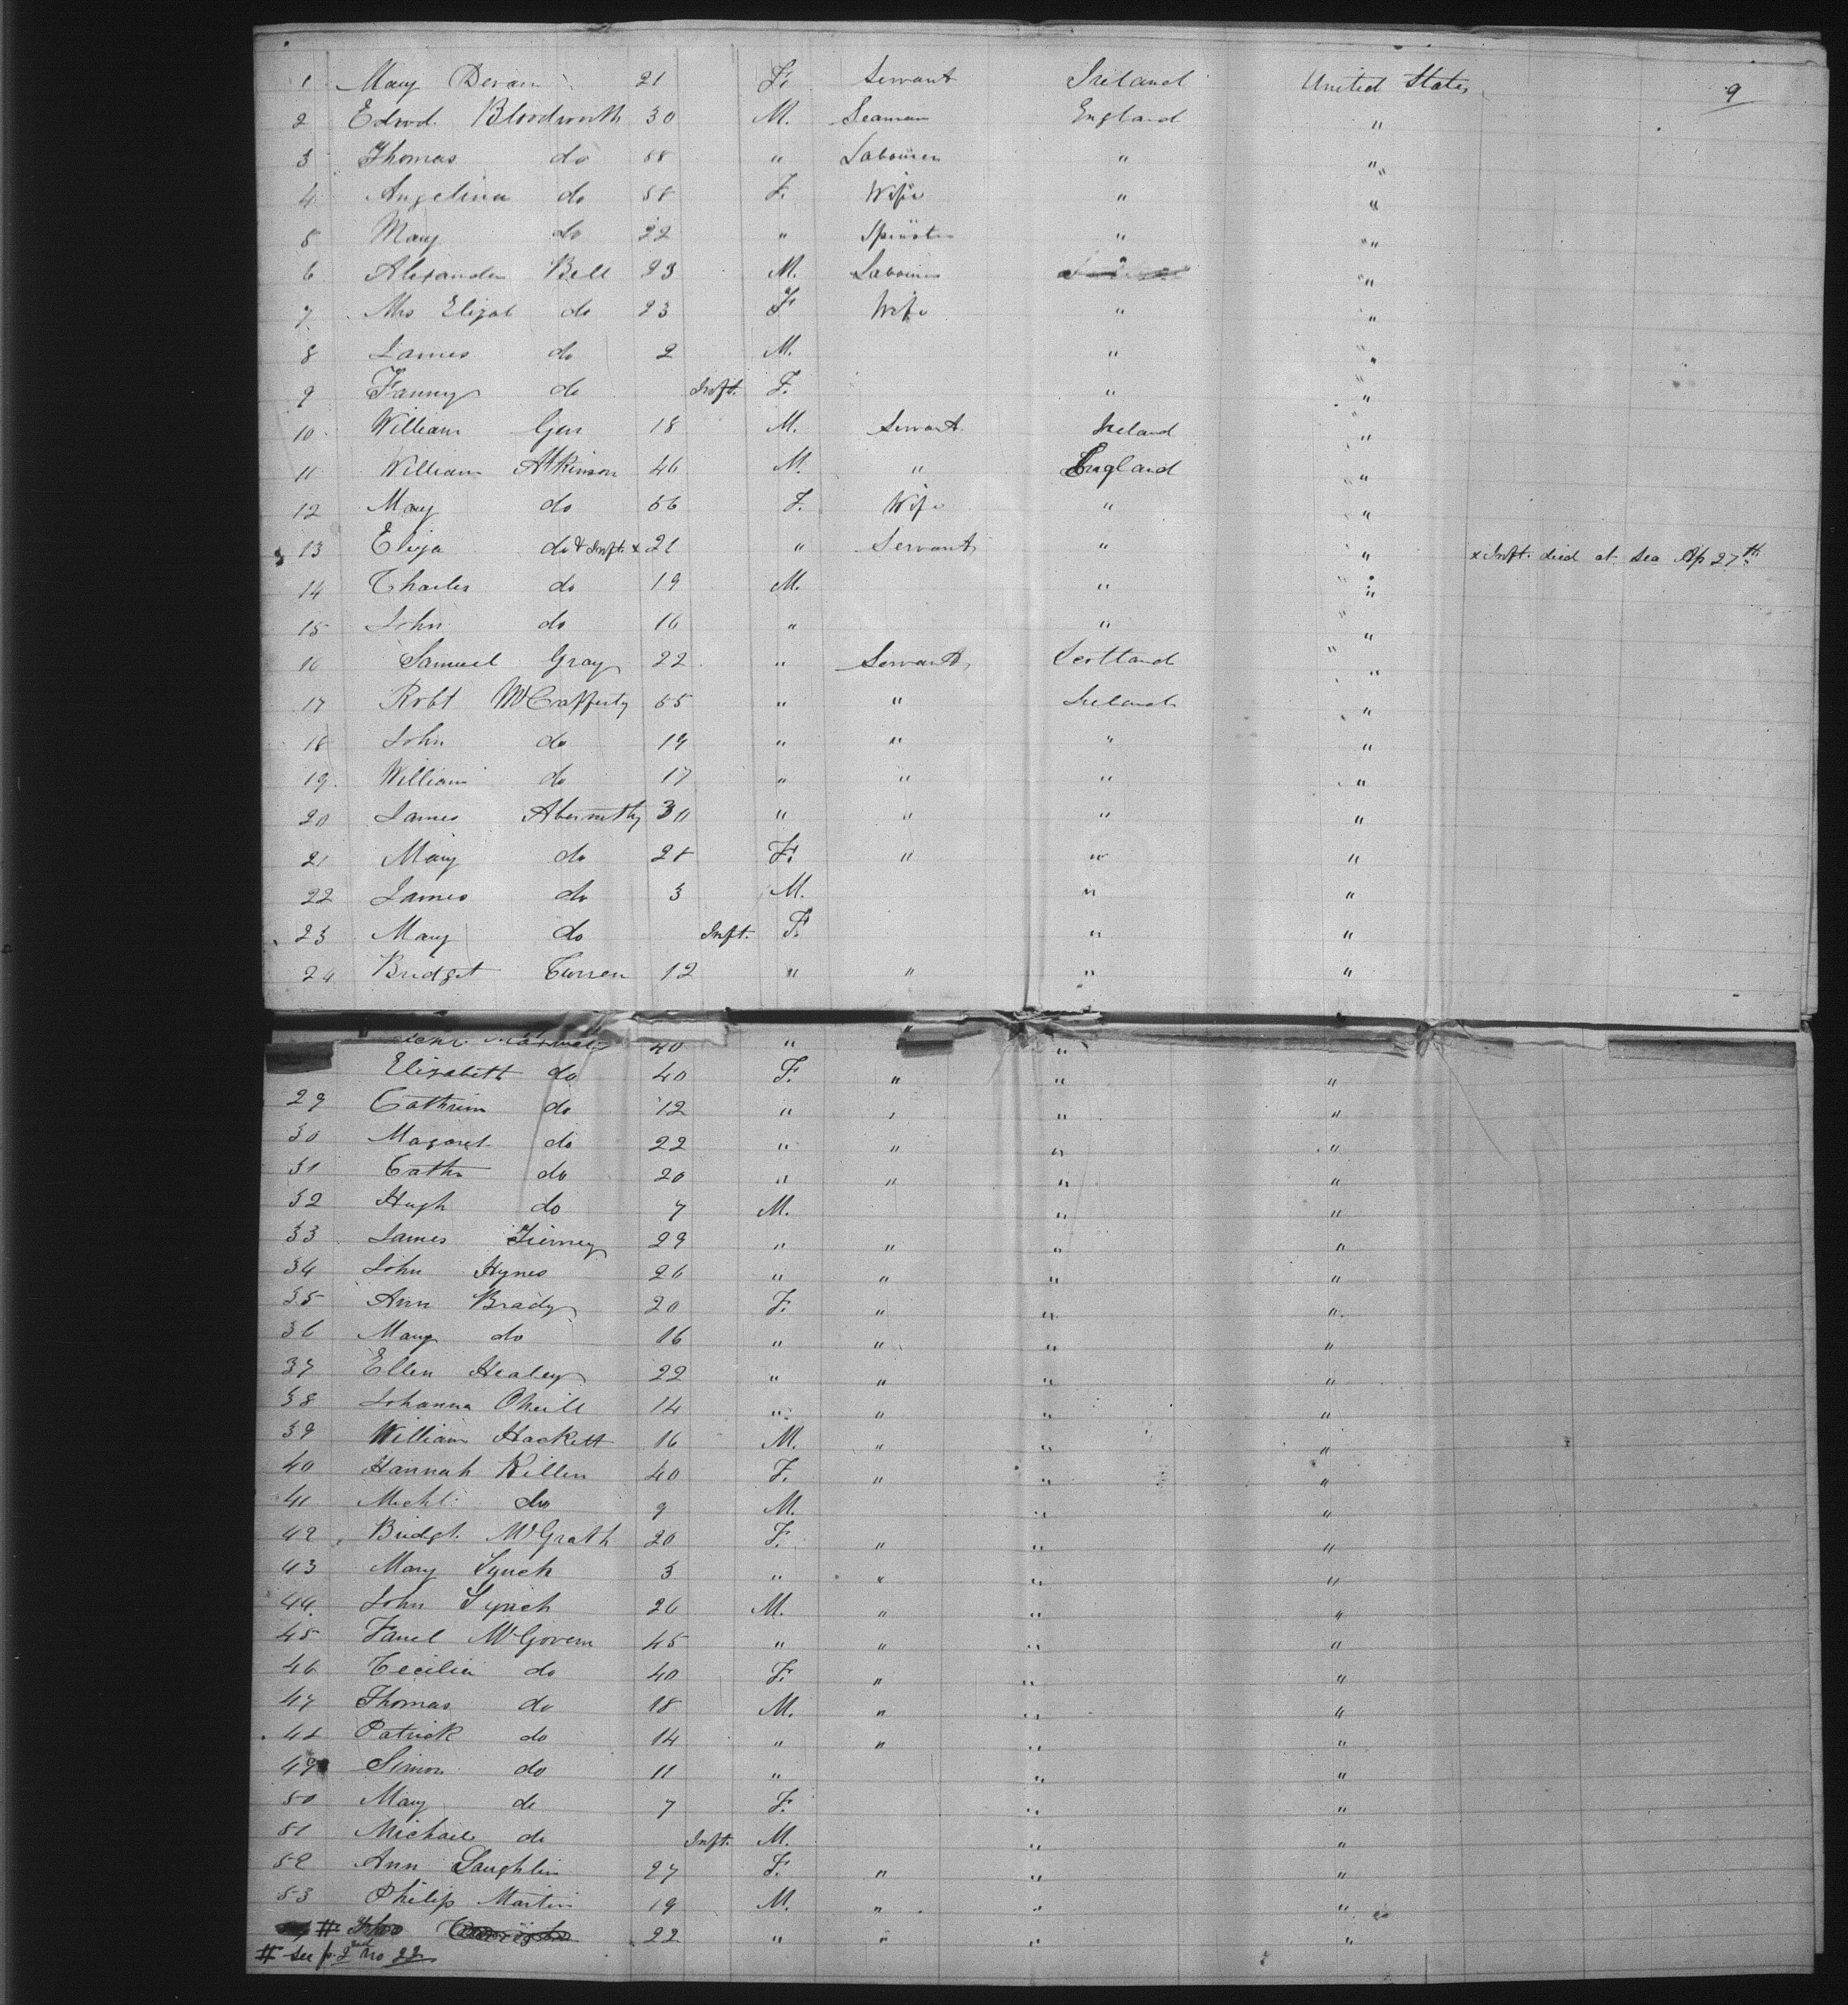 9
1 Mary Devan 21 F. Servant Ireland United States
2 Edwd. Bloodworth 30 M. Seaman England "
3 Thomas do 58 " Labourer " "
4 Angelina do 58 F. Wife " "
5 Mary do 22 " Spinster " "
6 Alexander Bell 23 M. Labourer "
7 Mrs Elizab do 23 F Wife " "
8 James do 2 M. " "
9 Fanny do Inft. F. " "
10 William 18 M. Servant Ireland "
11 William Atkinson 46 M. " England "
12 Mary do 56 F. Wife " "
13 Eliza do & Inft. x 21 " Servant " " x Inft. died at sea Ap 27th
14 Charles do 19 M. " "
15 John do 16 " " "
16 Samuel Gray 22 " Servant Scotland "
17 Robt McCafferty 55 " " Ireland "
18 John do 19 " " " "
19 William do 17 " " " "
20 James Abernethy 30 " " " "
21 Mary do 28 F. " " "
22 James do 3 M. " "
23 Mary do Inft. F. " "
24 Bridget Curren 12 " " " "
40 " " "
Elizabeth do 40 F. " " "
29 Cathrin do 12 " " " "
30 Magaret do 22 " " " "
31 Cath do 20 " " " "
32 Hugh do 7 M. " "
33 James Tierney 29 " " " "
34 John Hynes 26 " " " "
35 Ann Brady 20 F. " " "
36 Mary do 16 " " " "
37 Ellen Healey 22 " " " "
38 Johanna Oneill 14 " " " "
39 William Hackett 16 M. " " "
40 Hannah Killen 40 F. " " "
41 Michl. do 9 M. " "
42 Bridgt. McGrath 20 F. " " "
43 Mary Lynch 3 " " " "
44 John Lynch 26 M. " " "
45 McGovern 45 " " " "
46 Cecilia do 40 F. " " "
47 Thomas do 18 M. " " "
48 Patrick do 14 " " " "
49 Simon do 11 " " "
50 Mary do 7 F. " "
51 Michael do Inft. M. " "
52 Ann Laughlin 27 F. " " "
53 Philip Martin 19 M. " " "
# Thos 22 " " " "
# see p. 2nd No 22